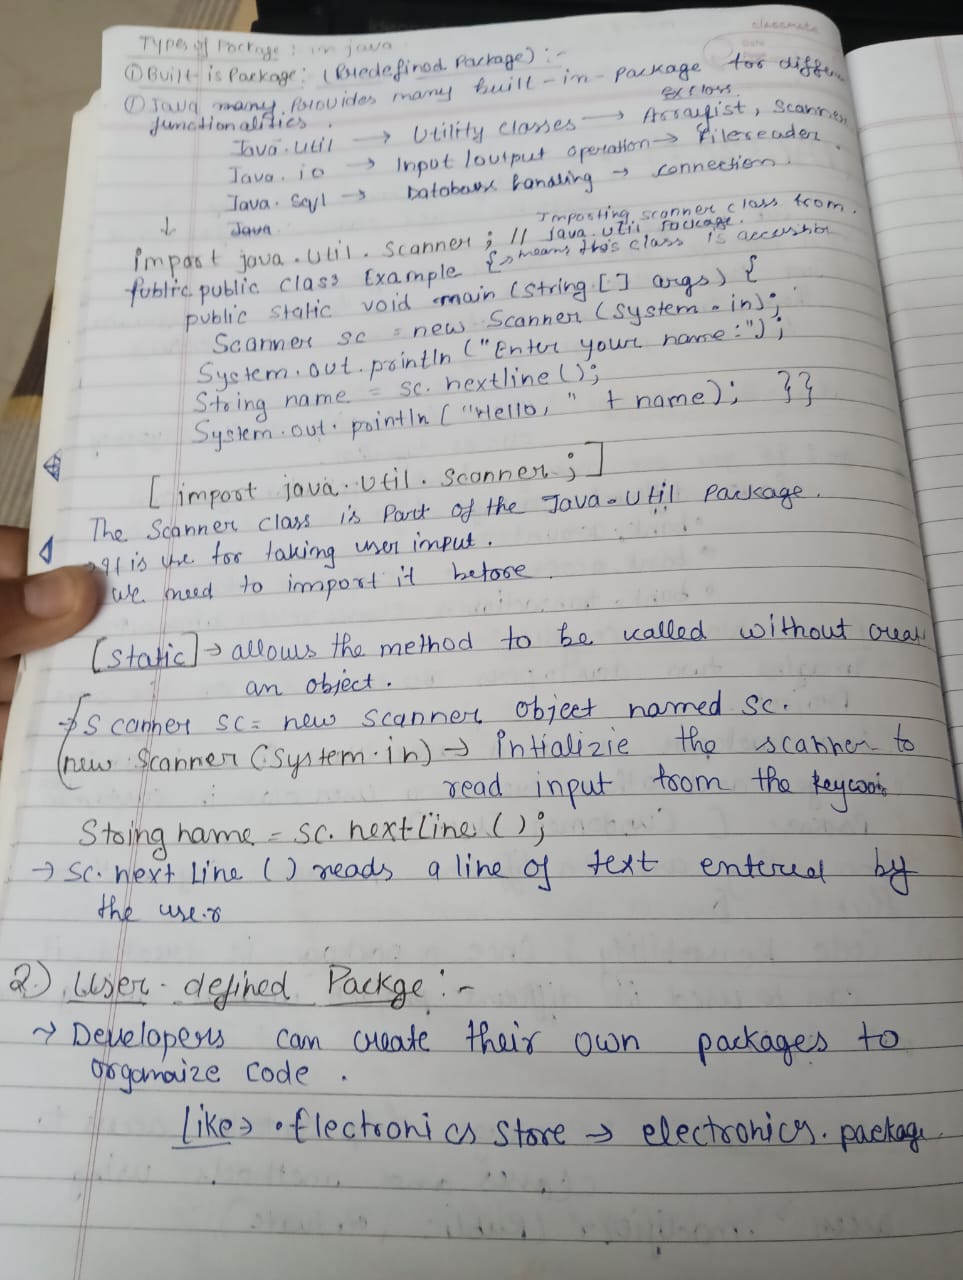 classmate
Types of Package: in java
① Built is Package: (Predefined Package) :-
① Java many Provides many built-in-package for differ
functionalities.
Java.util → Utility classes → Arraylist, Scanner
Java.io → Input/output operation → filereader
Java.Sql → Database handling → connection.
Java
↓ import java.util.Scanner; // Importing scanner class from.
java.util package.
public public class Example { → means this class is
public static void main (String [] args) {
Scanner sc = new Scanner (System.in);
System.out.println ("Enter your name:");
String name = sc.nextline();
System.out.println ("Hello, " + name); }}
[import java.util.Scanner;]
The Scanner class is Part of the Java.Util Package.
→ It is use for taking user input.
We need to import it before
[static] → allows the method to be called without creat
an object.
→ Scanner sc = new scanner object named sc.
(new Scanner (System.in) → intializie the scanner to
read input from the
String name = sc.nextLine();
→ sc.next Line () reads a line of text entered by
the user
2) User-defined Packge :-
→ Developers can create their own packages to
orgamaize code.
Like → • Electronics store → electronics.package